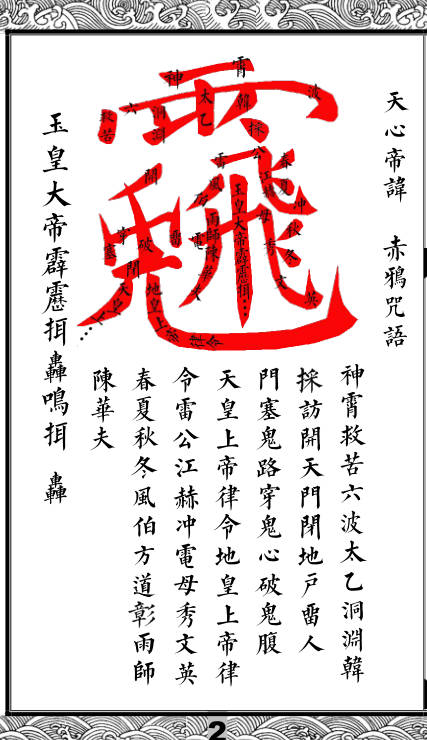 天心帝諱 赤鴉咒語
神霄救苦六波太乙洞淵韓
採訪開天門閉地戶畱人
門塞鬼路穿鬼心破鬼腹
天皇上帝律令地皇上帝律
令雷公江赫冲電母秀文英
春夏秋冬風伯方道彰雨師
陳華夫
玉皇大帝霹靂挕轟鳴挕 轟
2